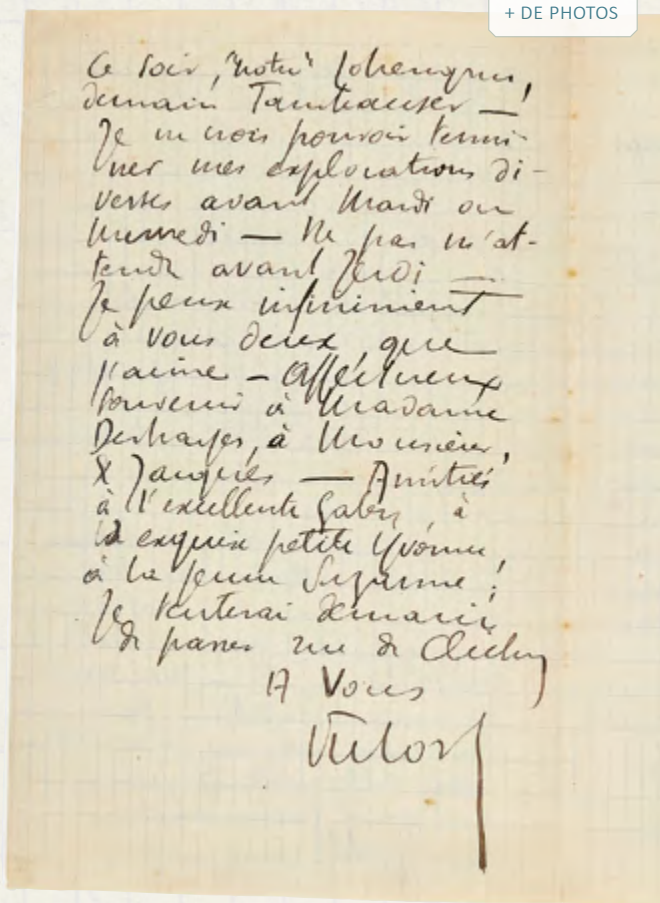 + DE PHOTOS
Ce soir, "notre" Lohengrin,
demain Tannhauser —
Je ne crois pouvoir termi-
ner mes explorations di-
verses avant Mardi ou
Mercredi — Ne pas m'at-
tendre avant Jeudi —
Je pense infiniment
à vous deux, que
j'aime — Affectueux
souvenir à Madame
à Monsieur,
X Jacques — Amitiés
à l'excellente Gaby, à
la exquise petite Yvonne,
à la jeune Suzanne ;
Je tenterai demain
de passer rue de Clichy
A Vous